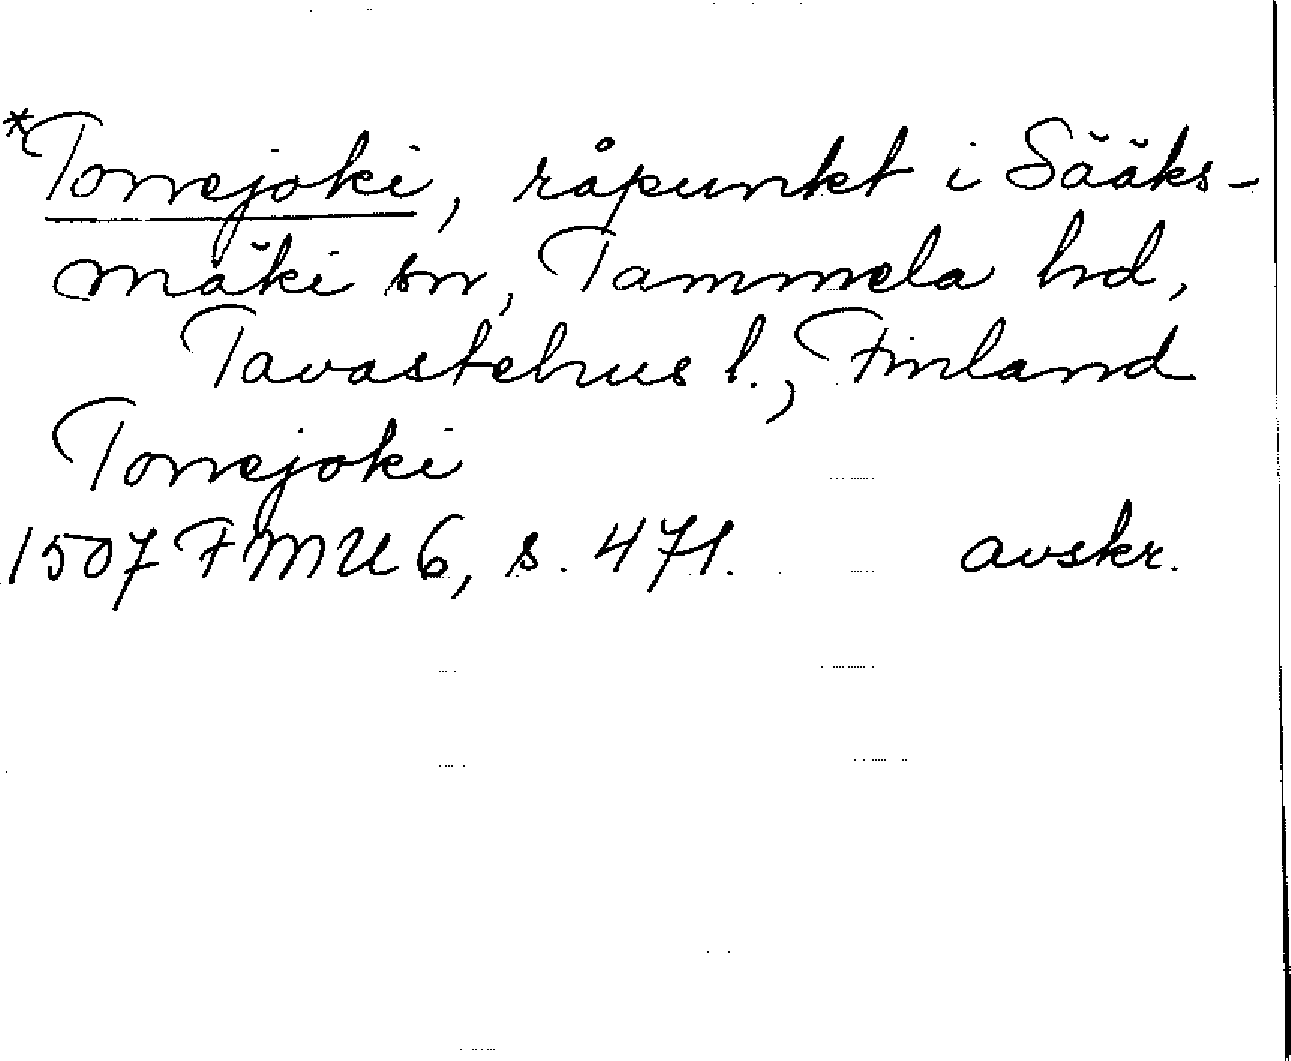 *Torrejoki, råpunkt i Sääks-
mäki sn, Tammela hd,
Tavastehus l., Finland
Torrejoki
1507 FMU 6, s. 471. avskr.